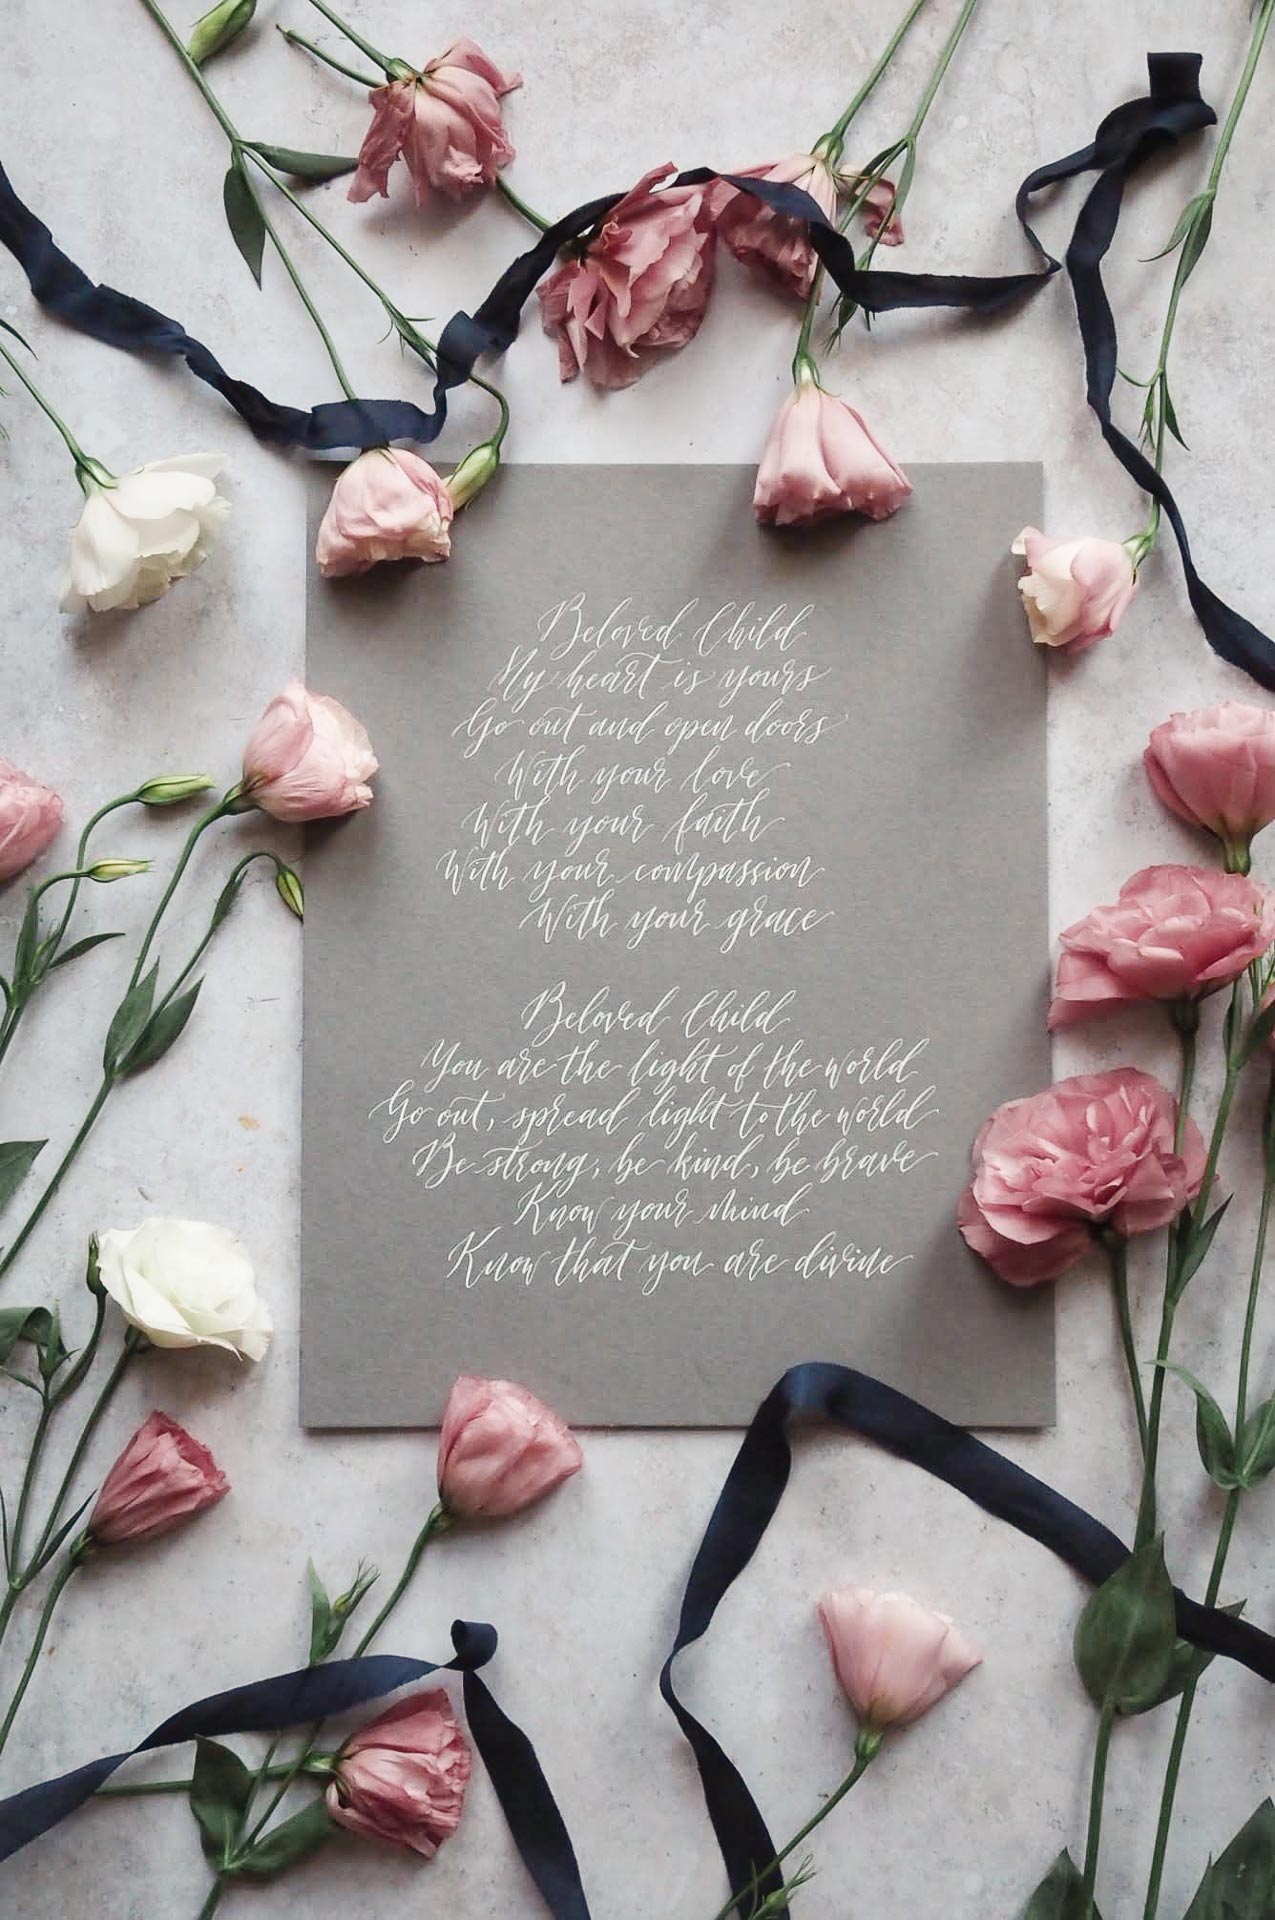 Beloved Child
My heart is yours
Go out and open doors
With your love
With your faith
With your compassion
With your grace
Beloved Child
You are the light of the world
Go out, spread light to the world
Be strong, be kind, be brave
Know your mind
Know that you are divine